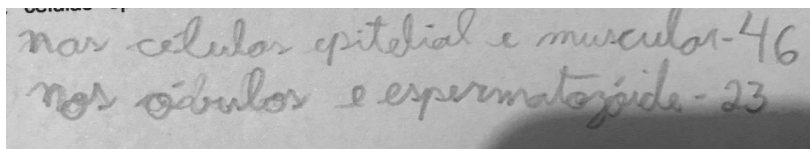 nas celulas epitelial e muscular-46
nos óbulos e espermatozóide-23